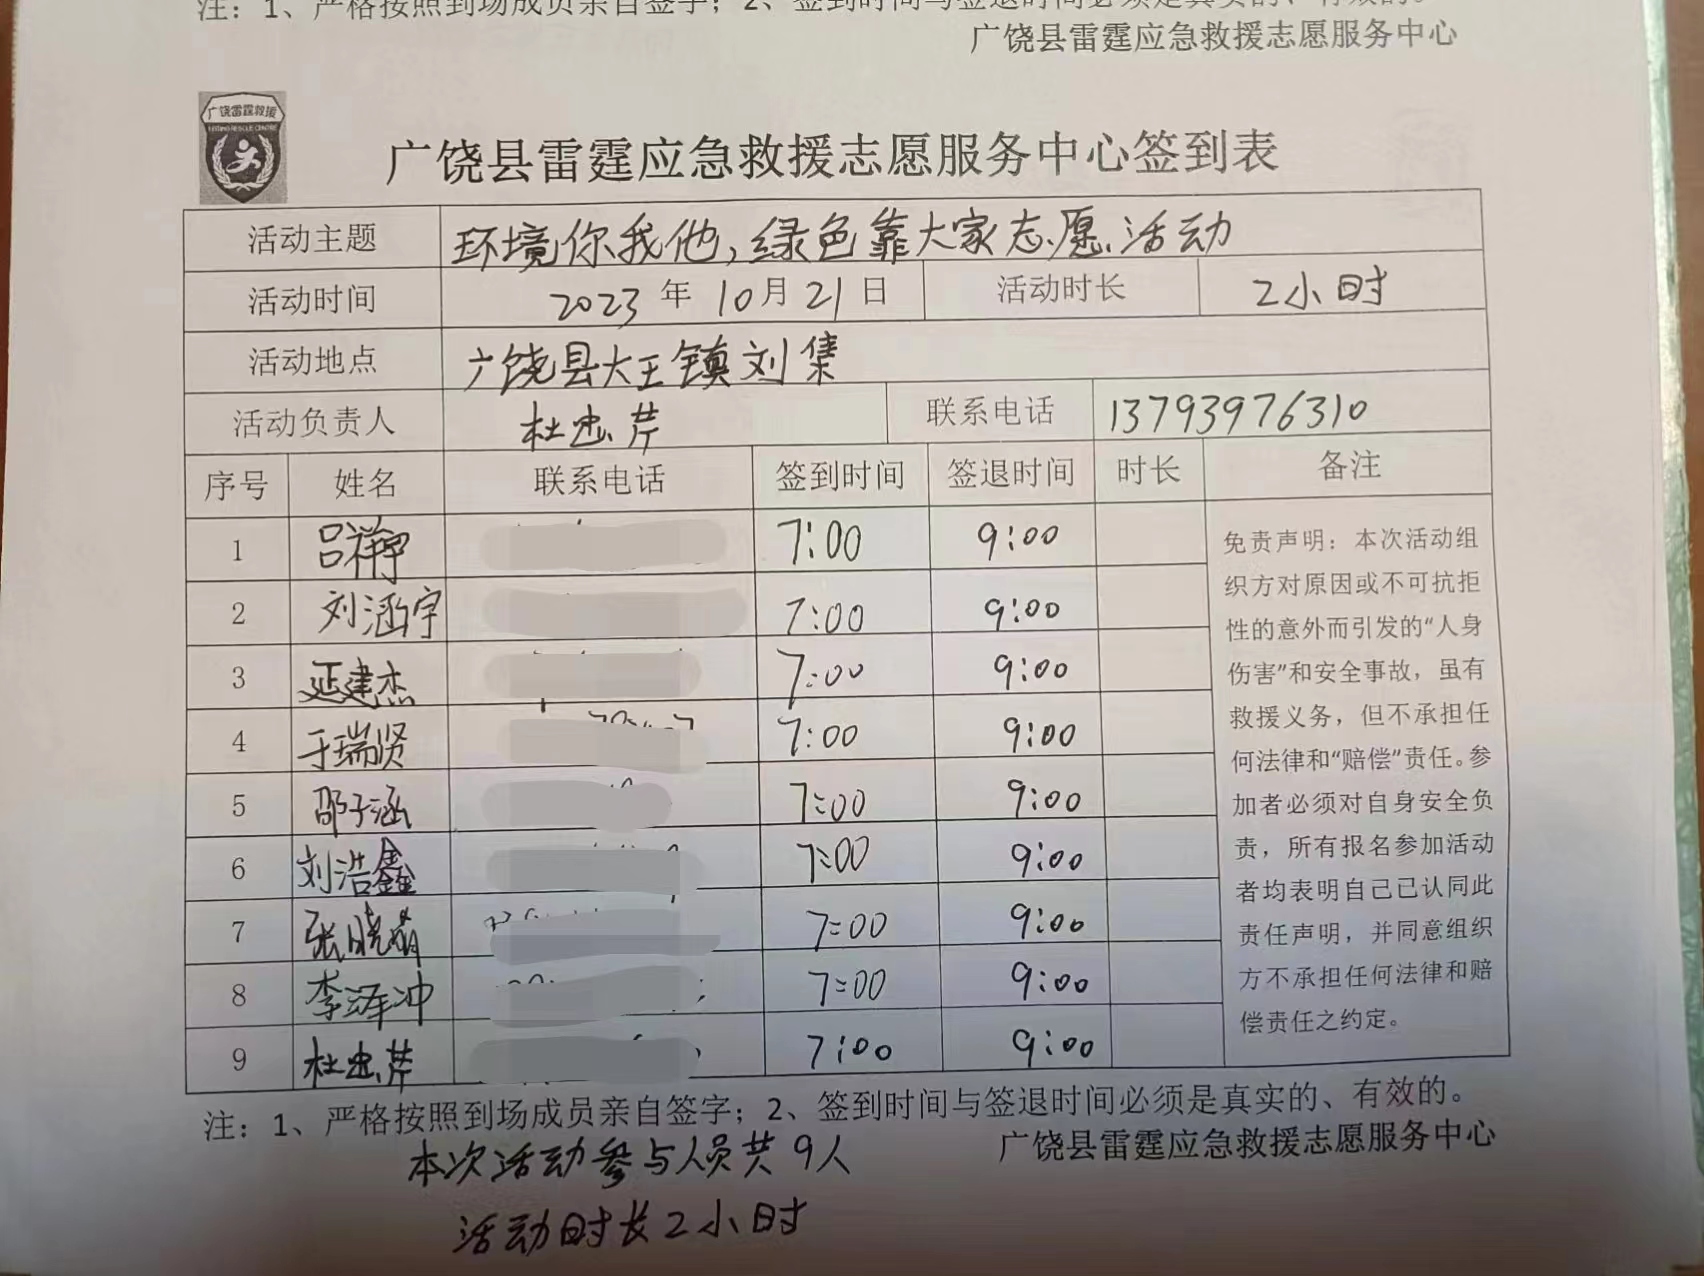 注：1、严格按照到场成员亲自签字；2、签到时间与签退时间必须是真实的、有效的。
广饶县雷霆应急救援志愿服务中心
广饶雷霆救援
LEITING RESCUE CENTRE
广饶县雷霆应急救援志愿服务中心签到表
活动主题 环境你我他,绿色靠大家志愿活动
活动时间 2023年10月21日 活动时长 2小时
活动地点 广饶县大王镇刘集
活动负责人 杜忠芹 联系电话 13793976310
序号 姓名 联系电话 签到时间 签退时间 时长 备注
1 吕祥宇 7:00 9:00
2 刘涵宇 7:00 9:00
3 延建杰 7:00 9:00
4 于瑞贤 7:00 9:00
5 邵子涵 7:00 9:00
6 刘浩鑫 7:00 9:00
7 张晓 7:00 9:00
8 李泽冲 7:00 9:00
9 杜忠芹 7:00 9:00
免责声明：本次活动组
织方对原因或不可抗拒
性的意外而引发的“人身
伤害”和安全事故，虽有
救援义务，但不承担任
何法律和“赔偿”责任。参
加者必须对自身安全负
责，所有报名参加活动
者均表明自己已认同此
责任声明，并同意组织
方不承担任何法律和赔
偿责任之约定。
注：1、严格按照到场成员亲自签字；2、签到时间与签退时间必须是真实的、有效的。
广饶县雷霆应急救援志愿服务中心
本次活动参与人员共9人
活动时长2小时